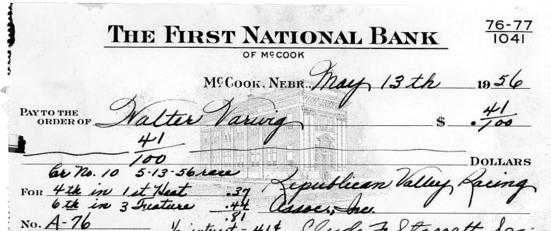 THE FIRST NATIONAL BANK
76-77
1041
OF McCOOK
McCOOK, NEBR., May 13th 1956
PAY TO THE
ORDER OF Walter Varwig $ .41/100
41/100 DOLLARS
Car No. 10 5-13-56 race
FOR 4th in 1st Heat .37 Republican Valley Racing
6th in 3 Feature .44 Assoc., Inc.
No. A-76 .81
1/2 interest - 41¢